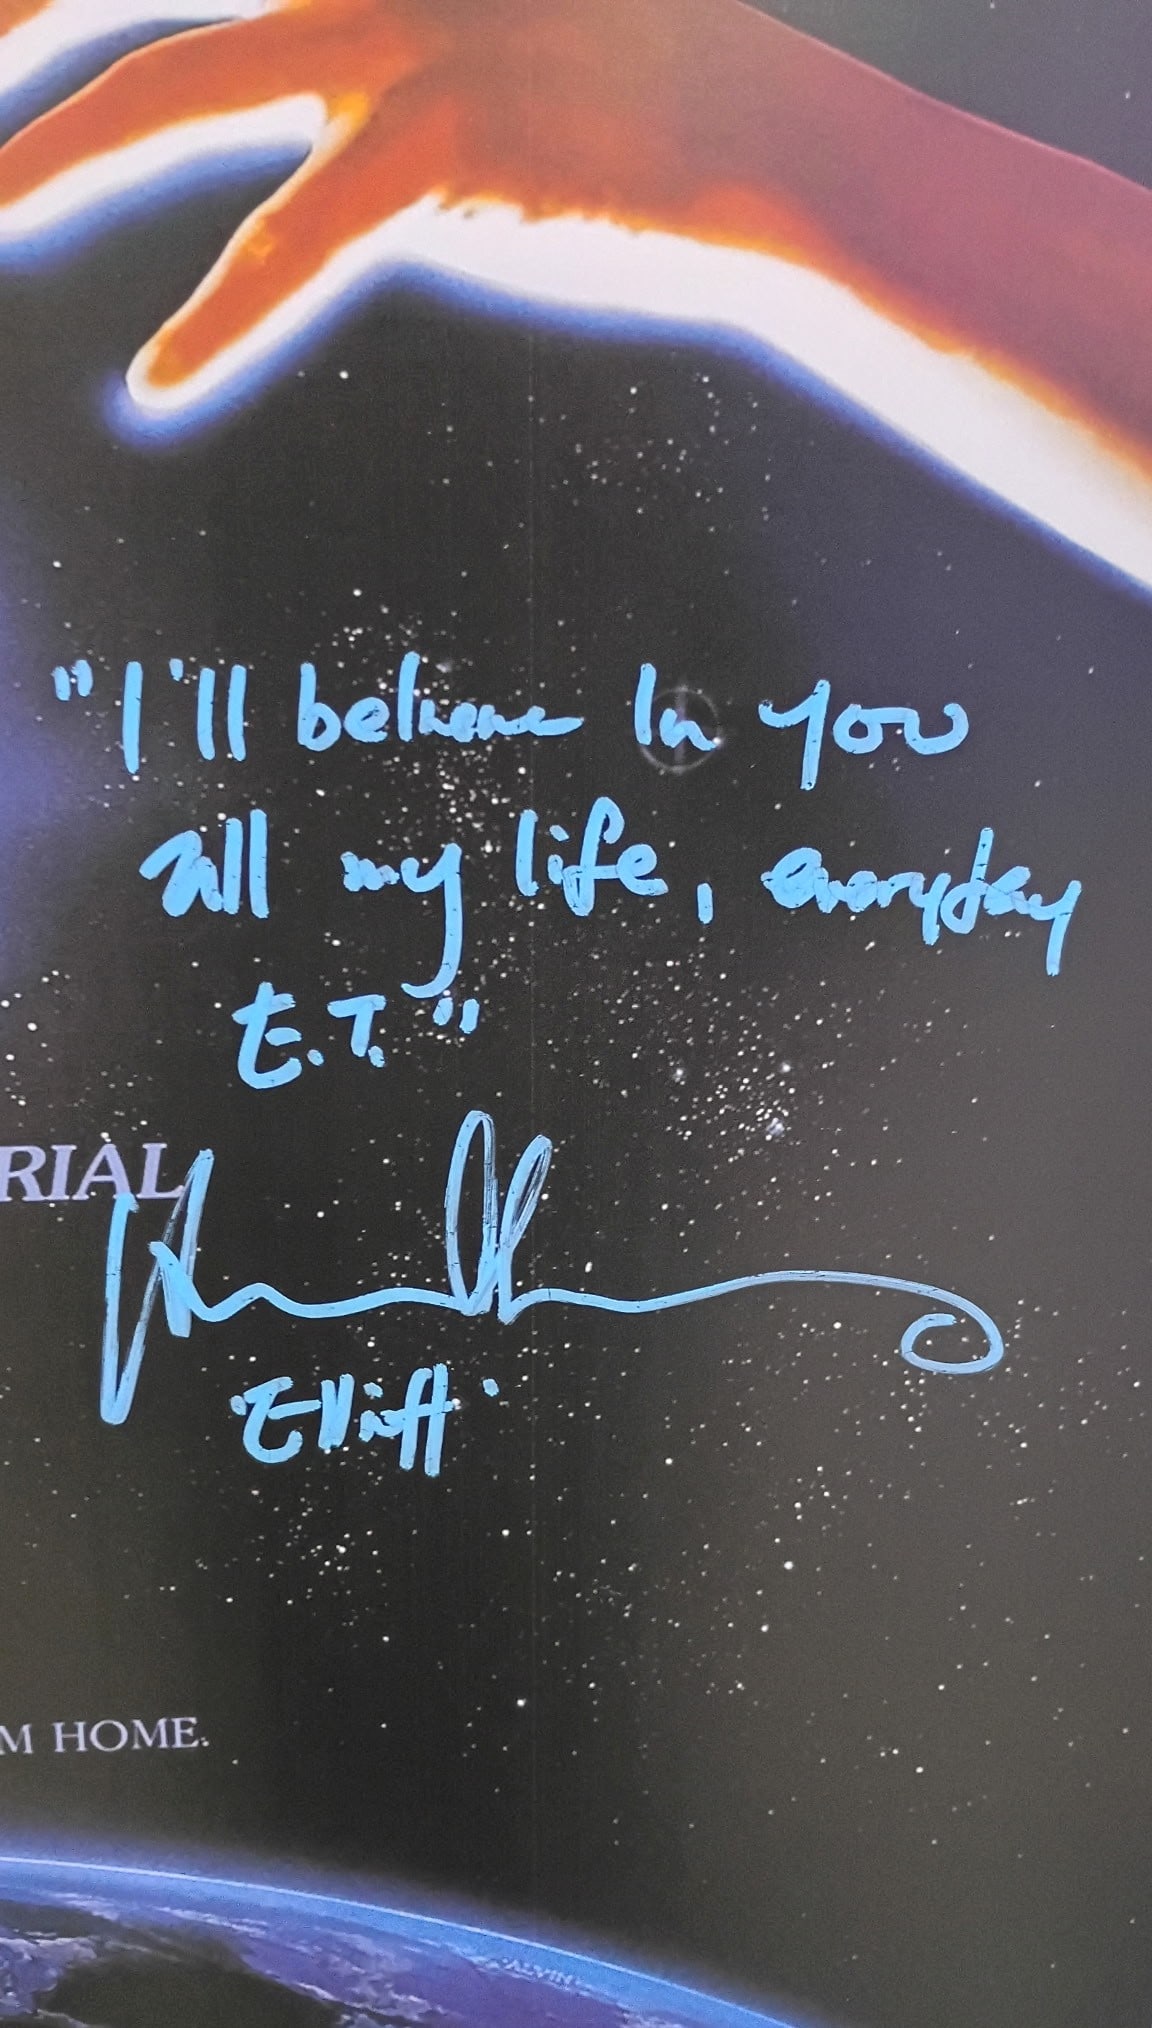 "I'll believe In you
all my life, everyday
E.T."
RIAL
'Elliott'
M HOME.
ALVIN